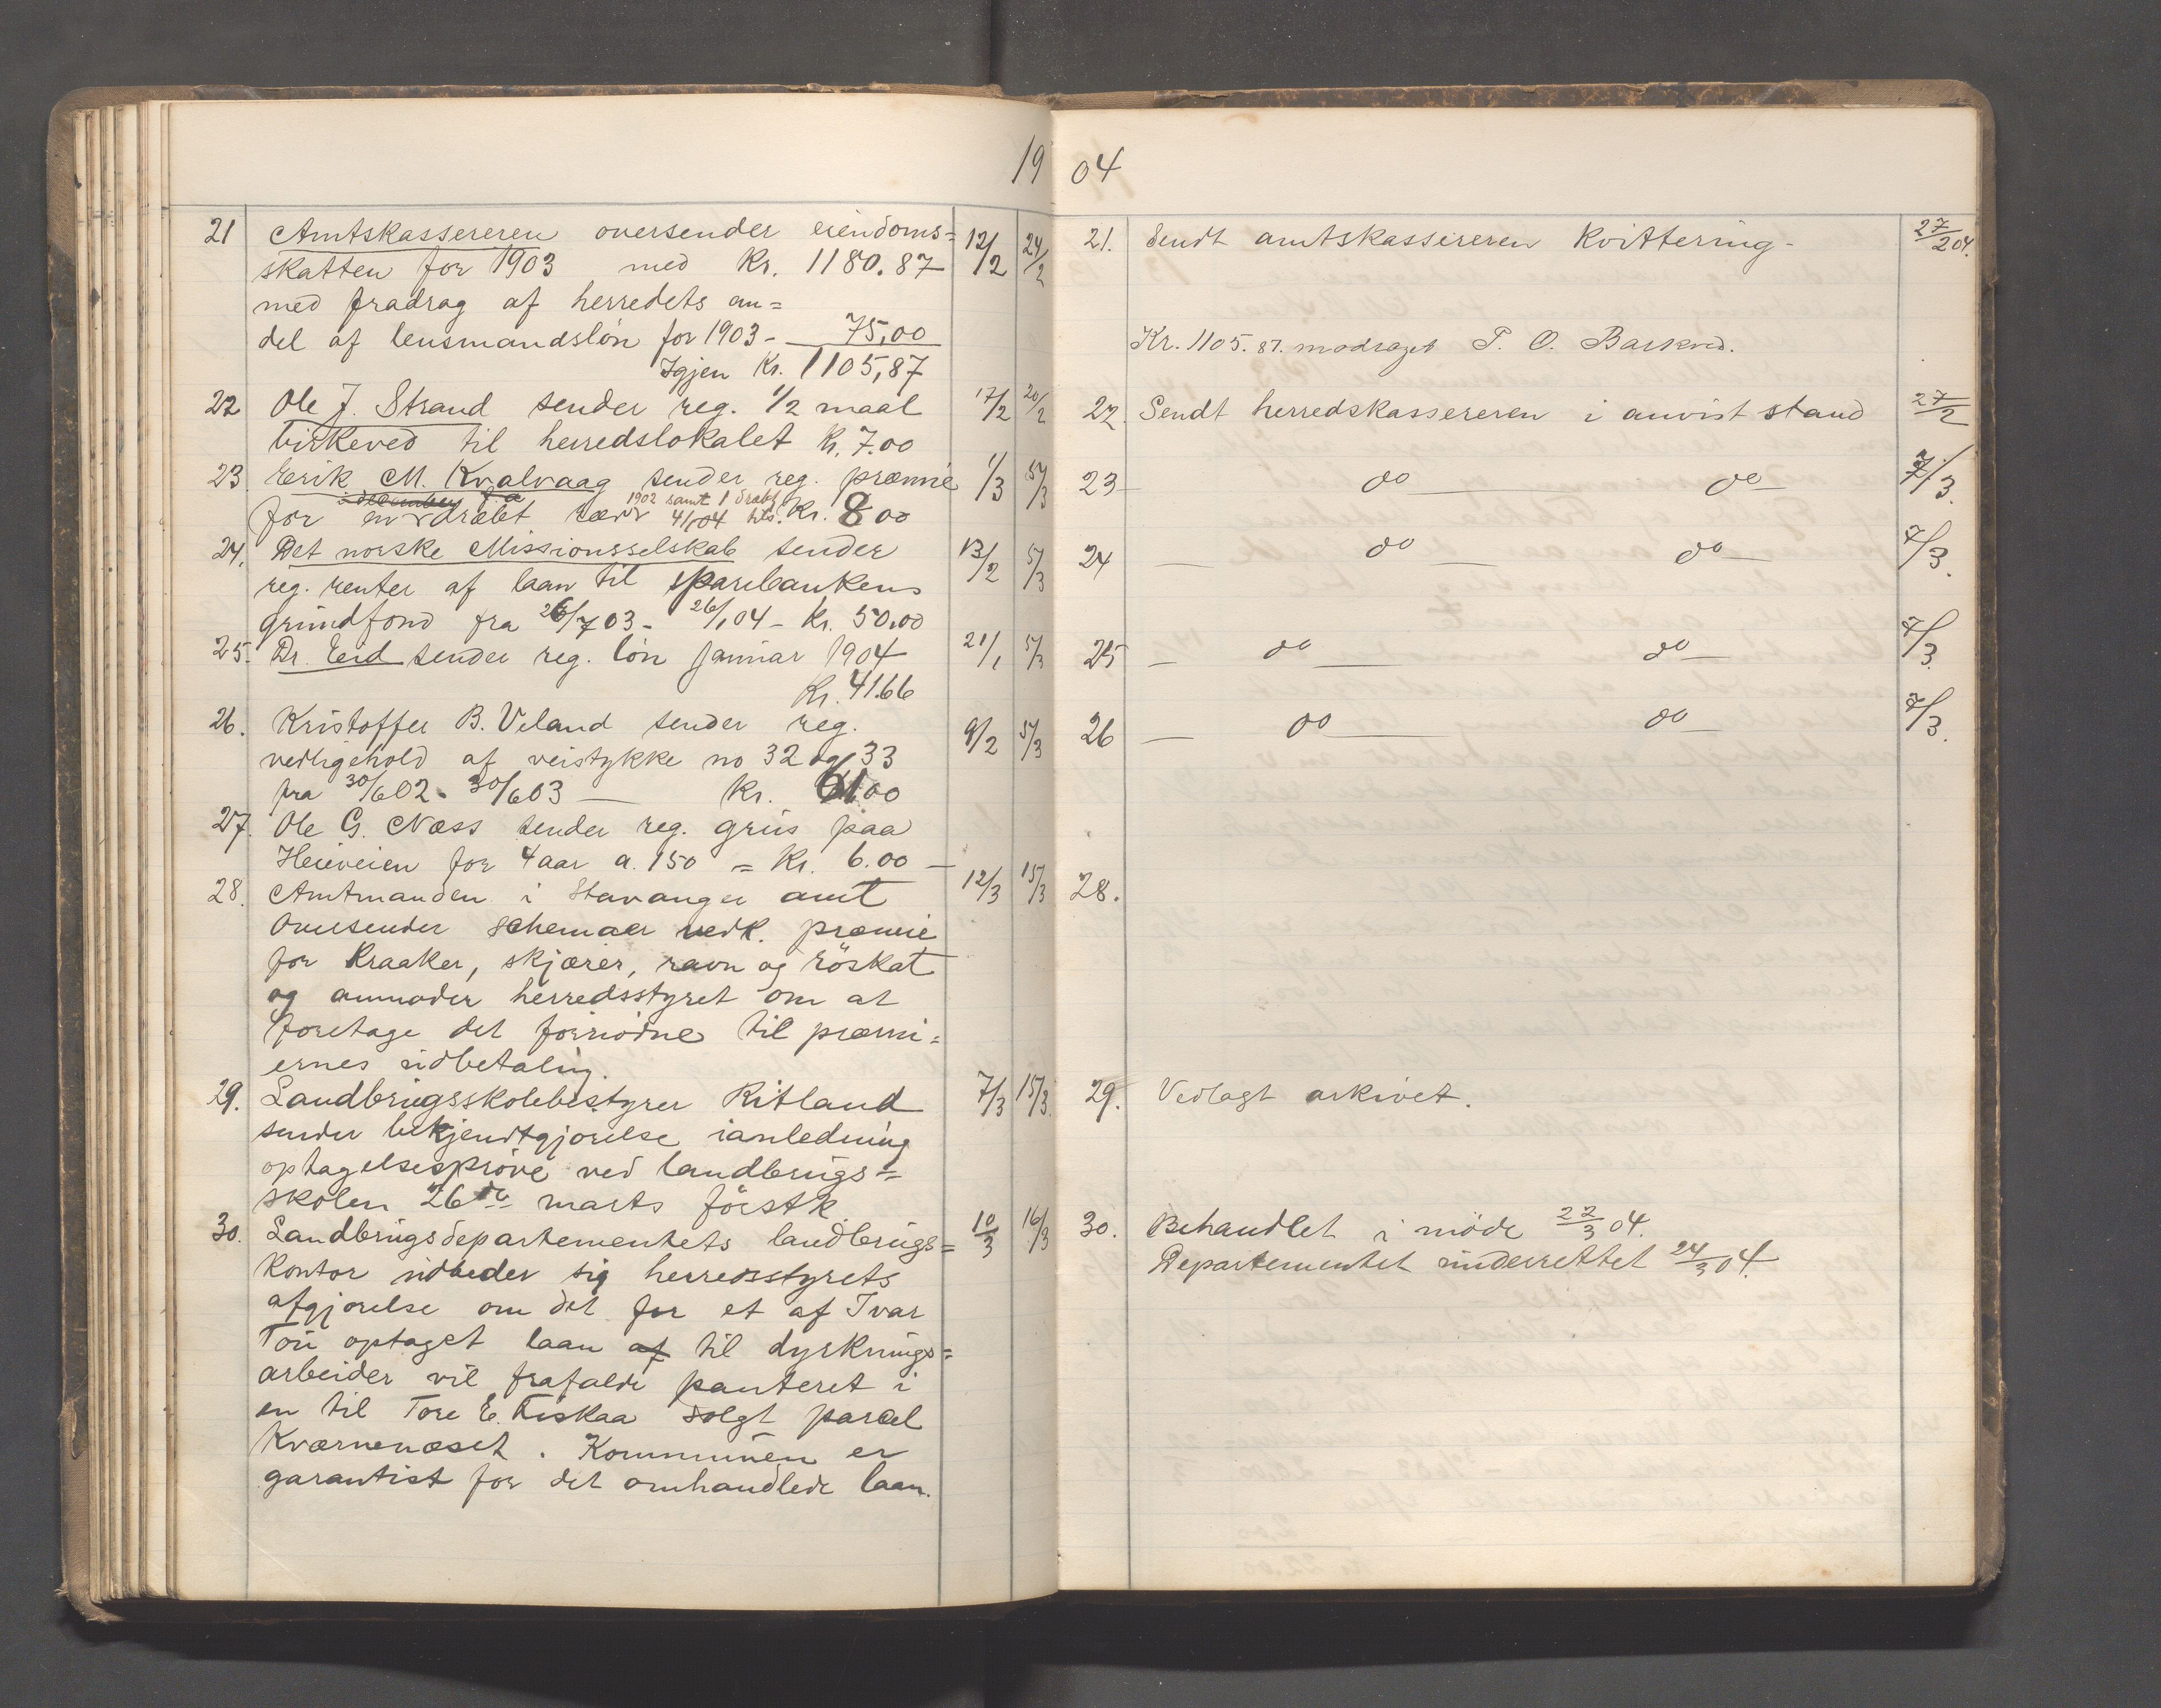 19 04
21 Amtskassereren oversender eiendoms= 12/2 24/2
skatten for 1903 med Kr. 1180.87
med fradrag af herredets an=
del af lensmandslön for 1903 - 75,00
Igjen Kr. 1105,87
22 Ole J. Strand sender reg. 1/2 maal 17/2 20/2
birkeved til herredslokalet Kr. 7.00
23 Erik M. Kvalvaag sender reg. præmie 1/3 5/3
december f.a 1902 samt 1 dræbt
for en dræbt 4/1 04 Kr. 8 00
24. Det norske Missionsselskab sender 13/2 5/3
reg. renter af laan til sparebankens
grundfond fra 26/7 03 - 26/1 04 - Kr. 50.00
25. Dr. Eid sender reg. lön januar 1904 21/1 5/3
Kr. 41.66
26. Kristoffer B. Veland sender reg. 9/2 5/3
vedligehold af veistykke no 32 og 33
fra 30/6 02 - 30/6 03 — Kr. 61.00
27. Ole G. Næss sender reg. grus paa
Heieveien for 4 aar a. 150 = Kr. 6.00 —
28. Amtmanden i Stavanger amt 12/3 15/3
oversender schemaer vedk. præmie
for kraaker, skjærer, ravn og röskat
og anmoder herredsstyret om at
foretage det fornödne til præmi=
ernes udbetaling.
29. Landbrugsskolebestyrer Ritland 7/3 15/3
sender bekjendtgjörelse i anledning
optagelsespröve ved landbrugs=
skolen 26de marts förstk.
30. Landbrugsdepartementets landbrugs= 10/3 16/3
kontor udbeder sig herredsstyrets
afgjörelse om det for et af Ivar
Tou optaget laan af til dyrknings=
arbeider vil frafalde panteret i
en til Tore E. Fiskaa solgt parcel
Kværnenæset. Kommunen er
garantist for det omhandlede laan.
21. Sendt amtskassereren Kvittering - 27/2 04.
Kr. 1105.87. modtaget P. O. Barkved.
22. Sendt herredskassereren i anvist stand 27/2
23 — do — do — 7/3.
24 — do — do — 7/3.
25 — do — do — 7/3.
26 — do — do — 7/3.
28.
29. Vedlagt arkivet.
30. Behandlet i möde 22/3 04.
Departementet underrettet 24/3 04.